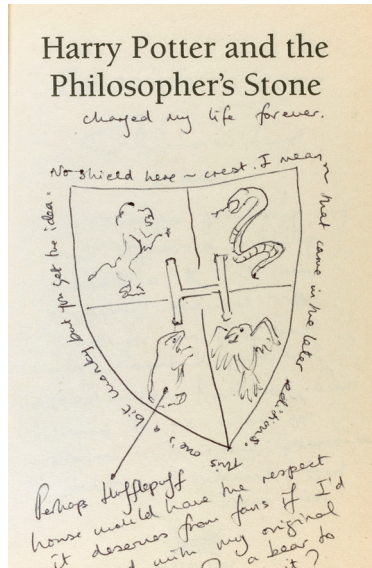 Harry Potter and the
Philosopher's Stone
changed my life forever.
No shield here ~ crest. I mean that came in the later editions. This one's a bit wonky but you get the idea.
H
Perhaps Hufflepuff
house would have the respect
it deserves from fans if I'd
with my original
a bear to
it?